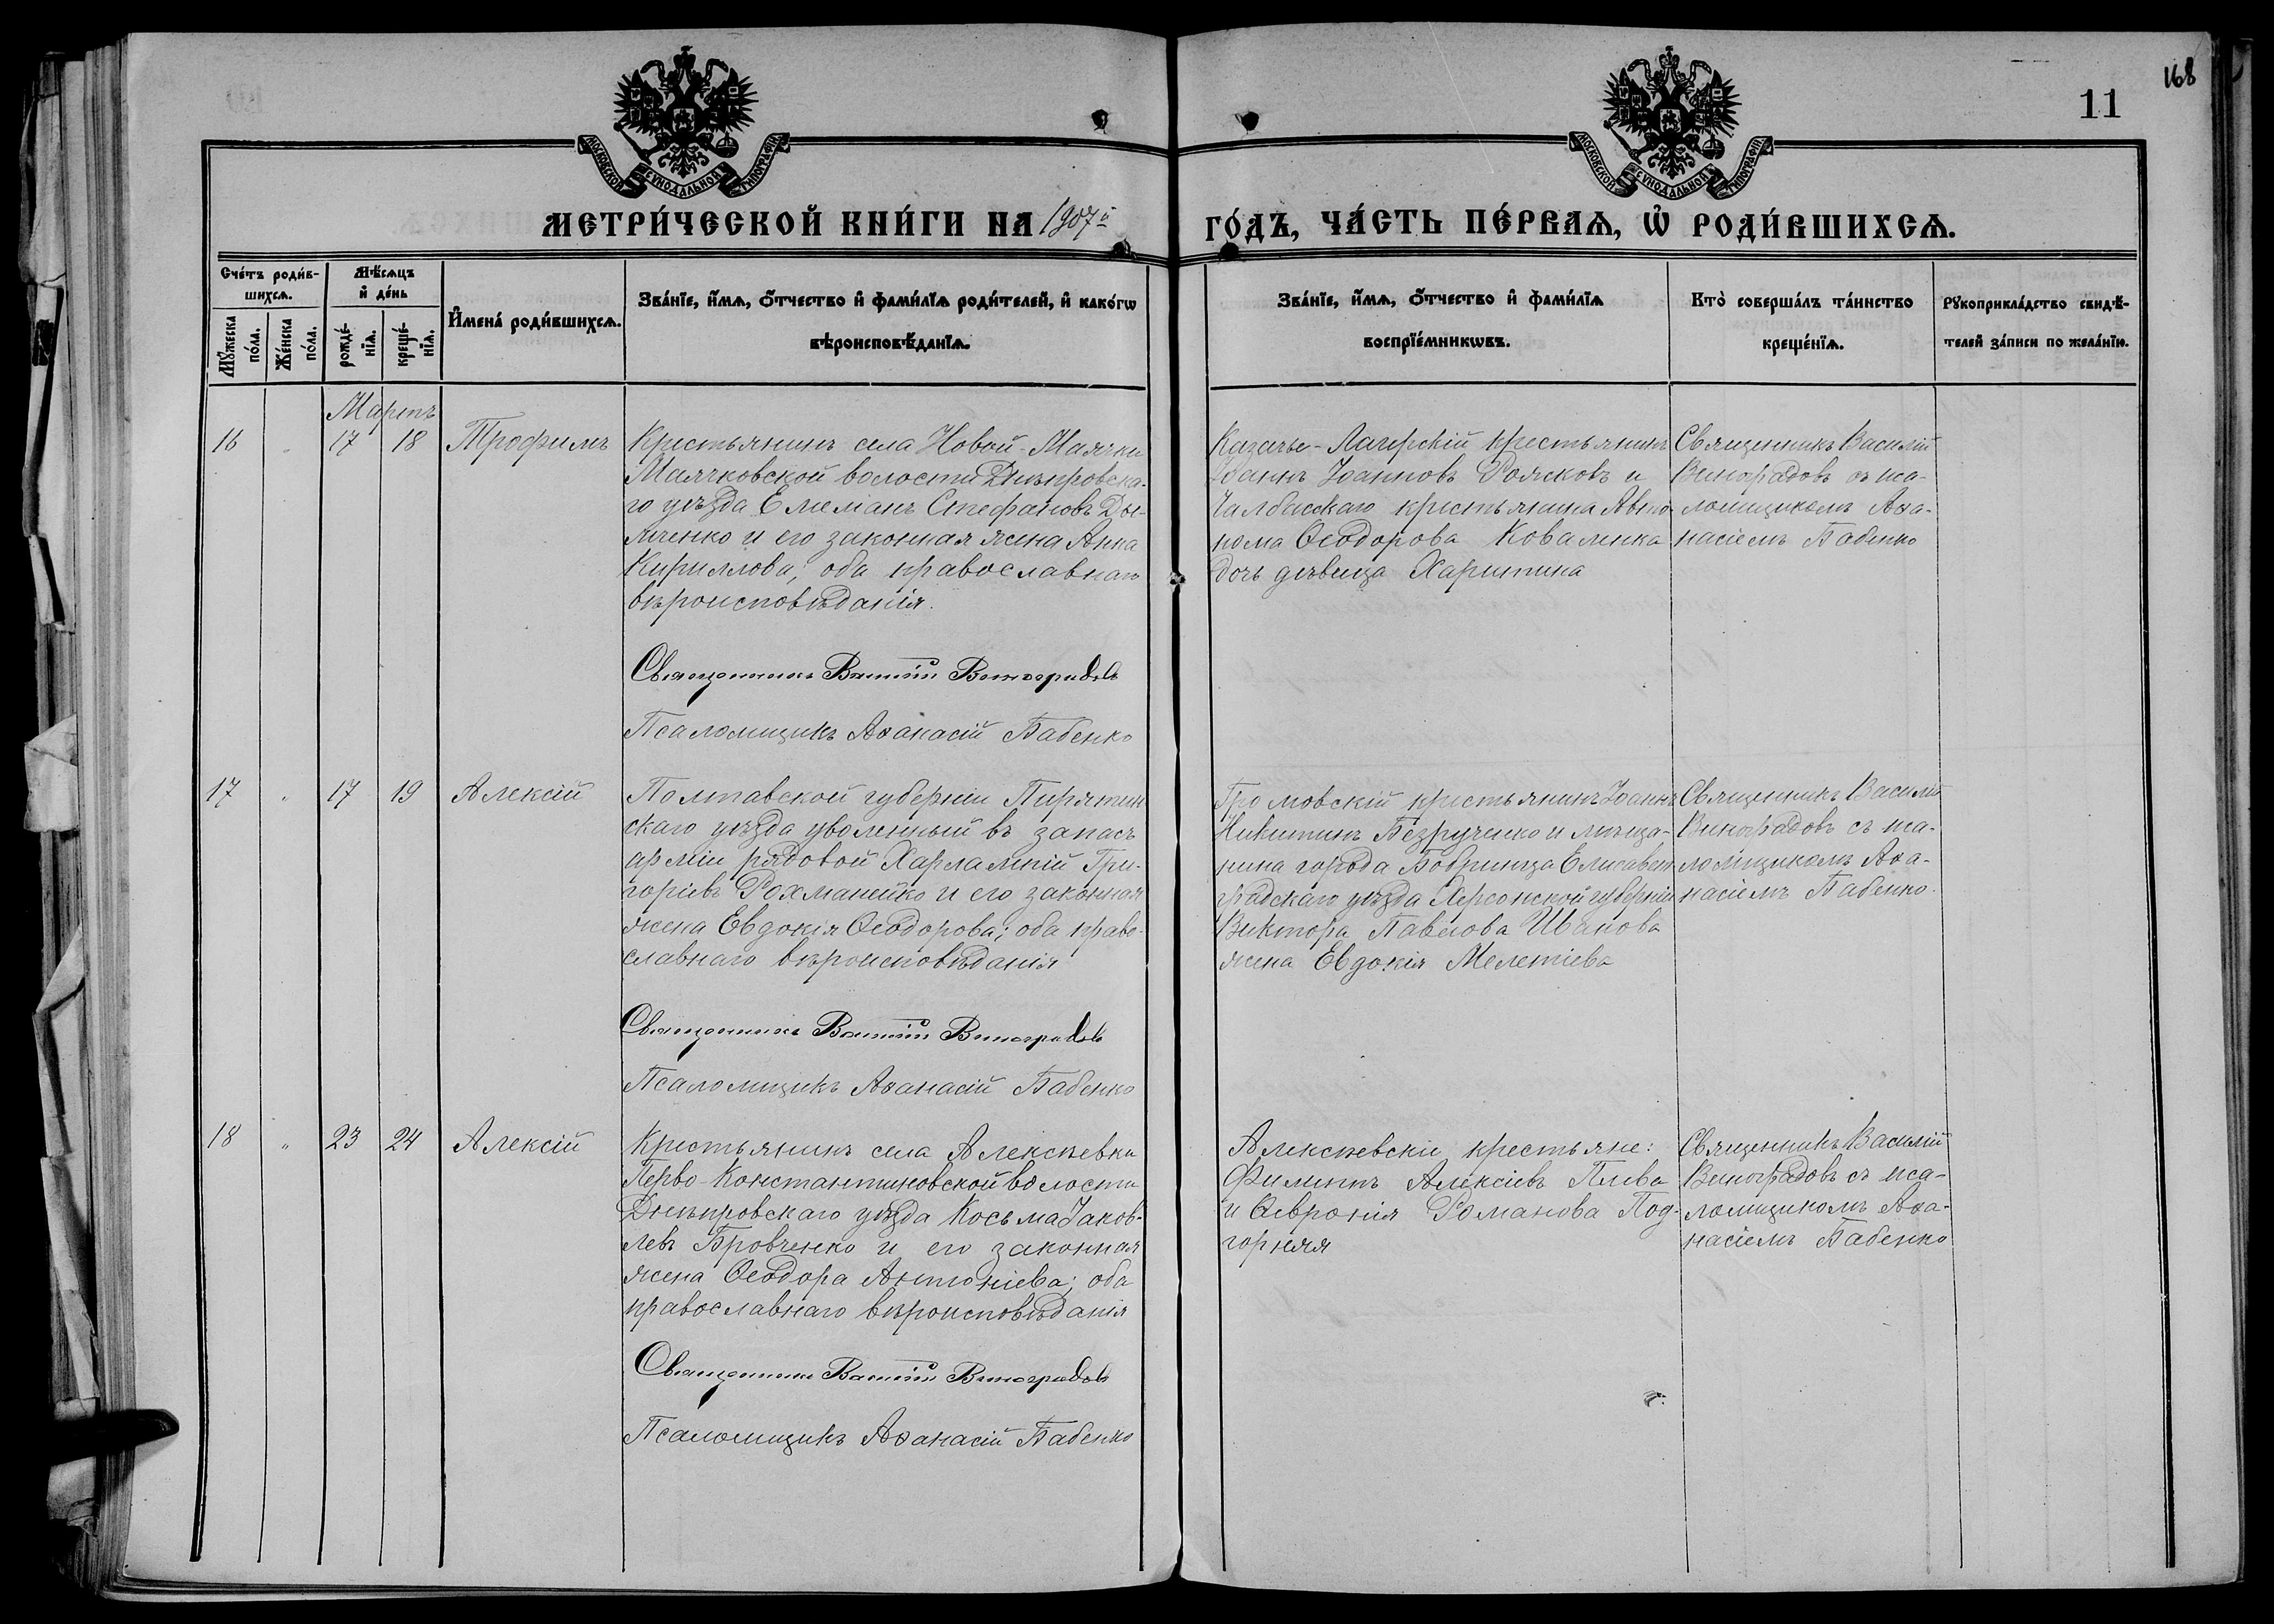 168
11
МОСКОВСКОЙ СѴНОДАЛЬНОЙ ТИПОГРАФІИ
МОСКОВСКОЙ СѴНОДАЛЬНОЙ ТИПОГРАФІИ
МЕТРИ́ЧЕСКОЙ КНИ́ГИ НА 1907й ГО́ДЪ, ЧА́СТЬ ПЕ́РВАѦ, Ѡ҆ РОДИ́ВШИХСѦ.
Сче́тъ роди́в-
шихсѧ.
Мꙋ́жеска
по́ла.
Же́нска
по́ла.
Мѣ́сѧцъ
и҆ де́нь
рожде́-
нїѧ.
креще́-
нїѧ.
И҆мена̀ роди́вшихсѧ.
Зва́нїе, и҆́мѧ, ѻ҆́тчество и҆ фами́лїѧ роди́телей, и҆ како́гѡ
вѣроисповѣ́данїѧ.
Зва́нїе, и҆́мѧ, ѻ҆́тчество и҆ фами́лїѧ
воспрїе́мникѡвъ.
Кто̀ соверша́лъ та́инство
креще́нїѧ.
Рꙋкоприкла́дство свидѣ́-
телей за́писи по жела́нїю.
Мартъ
16 " 17 18 Трофимъ
Крестьянинъ села Новой-Маячки
Маячковской волости Днѣпровска-
го уѣзда Емеліанъ Стефановъ Ды-
мченко и его законная жена Анна
Кириллова; оба православнаго
вѣроисповѣданія.
Священникъ Василій Виноградовъ
Псаломщикъ Аѳанасій Бабенко
Казачье-Лагерскій крестьянинъ
Іоаннъ Іоанновъ Роясковъ и
Чалбасскаго крестьянина Авто-
нома Ѳеодорова Коваленка
дочь дѣвица Харитина
Священникъ Василій
Виноградовъ съ пса-
ломщикомъ Аѳа-
насіемъ Бабенко
17 " 17 19 Алексій
Полтавской губерніи Пирятин
скаго уѣзда уволенный въ запасъ
арміи рядовой Харлампій Гри-
горіевъ Рохманейко и его законная
жена Евдокія Ѳеодорова; оба право-
славнаго вѣроисповѣданія
Священникъ Василій Виноградовъ
Псаломщикъ Аѳанасій Бабенко
Громовскій крестьянинъ Іоаннъ
Никитинъ Безрученко и мѣща-
нина города Бобринца Елисавет
градскаго уѣзда Херсонской губерніи
Виктора Павлова Иванова
жена Евдокія Мелетіева
Священникъ Василій
Виноградовъ съ пса-
ломщикомъ Аѳа-
насіемъ Бабенко.
18 " 23 24 Алексій
Крестьянинъ села Алексѣевки
Перво-Константиновской волости
Днѣпровскаго уѣзда Косьма Іаков-
левъ Бровченко и его законная
жена Ѳеодора Антоніева; оба
православнаго вѣроисповѣданія
Священникъ Василій Виноградовъ
Псаломщикъ Аѳанасій Бабенко
Алексѣевскіе крестьяне:
Филиппъ Алексіевъ Плева
и Ѳеврония Романова Под-
горняя
Священникъ Василій
Виноградовъ съ пса-
ломщикомъ Аѳа-
насіемъ Бабенко